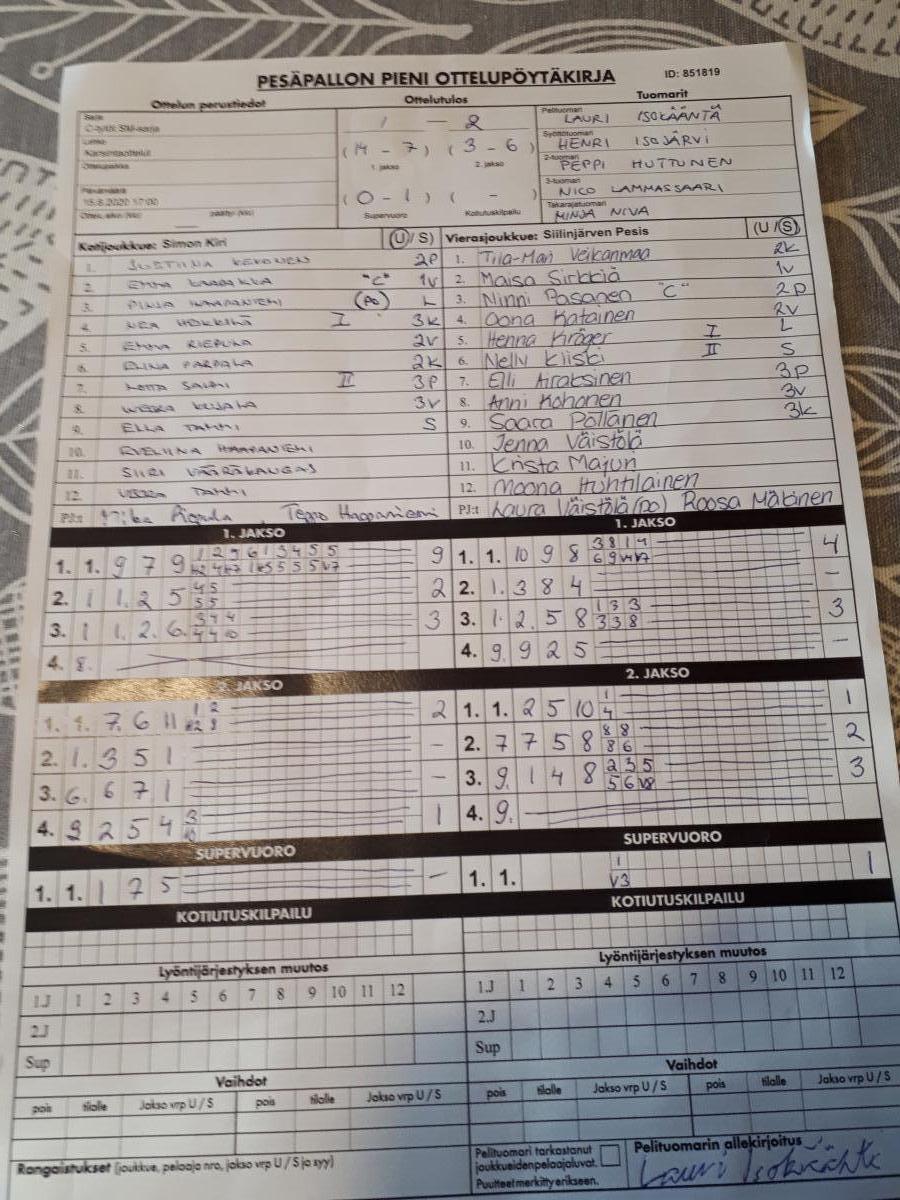 PESÄPALLON PIENI OTTELUPÖYTÄKIRJA ID: 851819
Ottelun perustiedot Ottelutulos Tuomarit
Sarja
C-tytöt SM-sarja
Lohko
Karsintaottelut
Ottelupaikka
Päivämäärä
Ottelu alkoi (klo) päättyi (klo)
1 - 2
(14 - 7) (3 - 6)
1. jakso 2. jakso
(0 - 1) ( - )
Supervuoro Kotiutuskilpailu
Pelituomari
LAURI ISOKÄÄNTÄ
Syöttötuomari
HENRI ISOJÄRVI
2-tuomari
PEPPI HUTTUNEN
3-tuomari
NICO LAMMASSAARI
Takarajatuomari
MINJA NIVA
Kotijoukkue: Simon Kiri (U / S) Vierasjoukkue: Siilinjärven Pesis (U / S)
1. JUSTIINA KEKONEN 2P
2. EMMA "C" 1V
3. PINJA HAAPANIEMI (PO) L
4. NEA I 3K
5. EMMA RIEPULA 2V
6. ELINA PARPALA 2K
7. LOTTA SALMI II 3P
8. 3V
9. ELLA TAMMI S
10. EVELIINA HAAPANIEMI
11. SIIRI VÄÄRÄKANGAS
12. TAMMI
PJ:t Mika Riepula, Teppo Haapaniemi
1. Tiia-Mari Veikanmaa 2K
2. Maisa Sirkkiä 1V
3. Ninni Pasanen "C" 2P
4. Oona Katainen 2V
5. Henna Kröger I L
6. Nelly Kliski II S
7. Elli Airaksinen 3P
8. Anni Kohonen 3V
9. Saara Pöllänen 3K
10. Jenna Väistölä
11. Krista Majuri
12. Moona Huhtilainen
PJ:t Laura Väistölä (PO) Roosa Mäkinen
1. JAKSO 1. JAKSO
1. 1. 9 7 9 1 2 9 6 1 3 4 5 5 9
2. 1 1. 2 5 4 5 2
5 5
3. 1 1. 2. 6. 3 4 4 3
4 4 10
4. 8.
1. 1. 10 9 8 3 8 1 9 4
2. 1. 3 8 4 -
3. 1. 2. 5 8 1 3 3 3
3 3 8
4. 9. 9 2 5 -
2. JAKSO 2. JAKSO
1. 1. 7. 6 11 1 2 2
2. 1. 3 5 1 -
3. 6. 6 7 1 -
4. 9 2 5 4 3 1
10
1. 1. 2 5 10 1 1
4
2. 7 7 5 8 8 8 2
8 6
3. 9. 1 4 8 2 3 5 3
5 6 V8
4. 9.
SUPERVUORO SUPERVUORO
1. 1. 1 7 5 -
1. 1. 1 1
V3
KOTIUTUSKILPAILU KOTIUTUSKILPAILU
Lyöntijärjestyksen muutos Lyöntijärjestyksen muutos
1.J 1 2 3 4 5 6 7 8 9 10 11 12
2.J
Sup
1.J 1 2 3 4 5 6 7 8 9 10 11 12
2.J
Sup
Vaihdot Vaihdot
pois tilalle Jakso vrp U / S pois tilalle Jakso vrp U / S
pois tilalle Jakso vrp U / S pois tilalle Jakso vrp U / S
Rangaistukset (joukkue, pelaaja nro, jakso vrp U / S ja syy)
Pelituomari tarkastanut
joukkueidenpelaajaluvat.
Puutteetmerkittyerikseen.
Pelituomarin allekirjoitus
Lauri Isokääntä